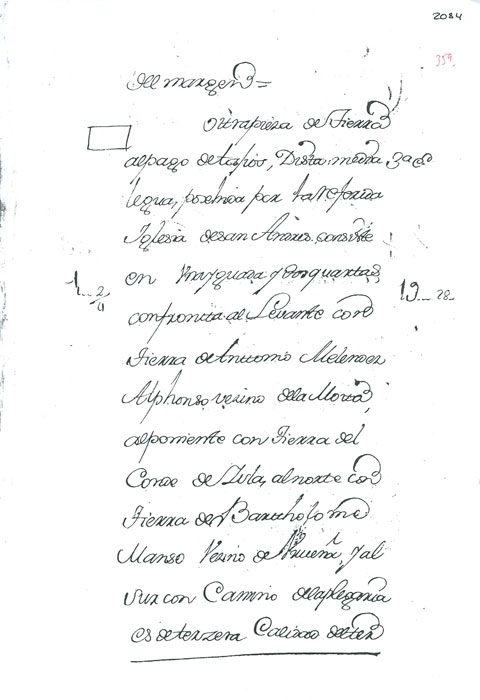 2084
359
del margen =
Otra pieza de Tierra
al pago de Dista media 3ª C
legua, poseída por la referida
Iglesia de san Andres consiste
en Una yguada y Dos quartas,
1 2/4
19 28
confronta al Levante con
Tierra de Anttonio Melendez
Alphonso vezino de la Motta,
al poniente con Tierra del
Conde de Lula, al norte con
Tierra de Bartholome
Manso Vezino de y al
sur con Camino de la
es de terzera Calidad